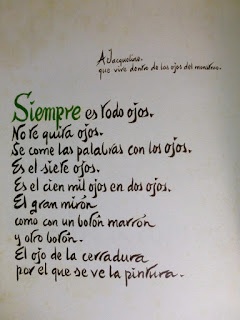 A Jacqueline.
que vive dentro de los ojos del monstruo.
Siempre es todo ojos.
No te quita ojos.
Se come las palabras con los ojos.
Es el siete ojos.
Es el cien mil ojos en dos ojos.
El gran mirón
como con un botón marrón
y otro botón.
El ojo de la cerradura
por el que se ve la pintura.